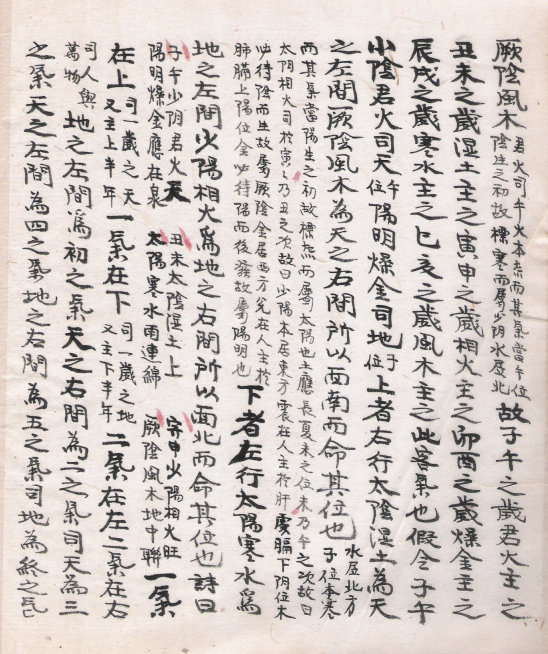 厥陰風木君火司午火本炎而其氣當午位
陰生之初故標寒而屬少阴水居北故子午之歲君火主之
丑未之歲湿土主之寅申之歲相火主之卯酉之歲燥金主之
辰戌之歲寒水主之巳亥之歲風木主之此客氣也假令子午
少陰君火司天午位陽明燥金司地子位上者右行太陰湿土為天
之左間厥陰風木為天之右間所以面南而命其位也水居北方
子位本寒
而其氣當陽生之初故標热而屬太陽也土應長夏未之位未乃午之次故曰
太阴相火司於寅〻乃丑之次故曰少陽木居東方震在人主於肝處膈下阴位木
必待陰而生故屬厥陰金居西方兑在人主於
肺膈上陽位金必待陽而後發故屬陽明也下者左行太陽寒水為
地之左間少陽相火為地之右間所以面北而命其位也詩曰
子午少阴君火天
陽明燥金應在泉
丑未太陰湿土上
太陽寒水雨連綿
寅申少陽相火旺
厥陰風木地中聯一氣
在上司一歲之天
又主上半年一氣在下司一歲之地
又主下半年二氣在左二氣在右
司人與
萬物地之左間為初之氣天之右間為二之氣司天為三
之氣天之左間為四之氣地之右間為五之氣司地為終之氣